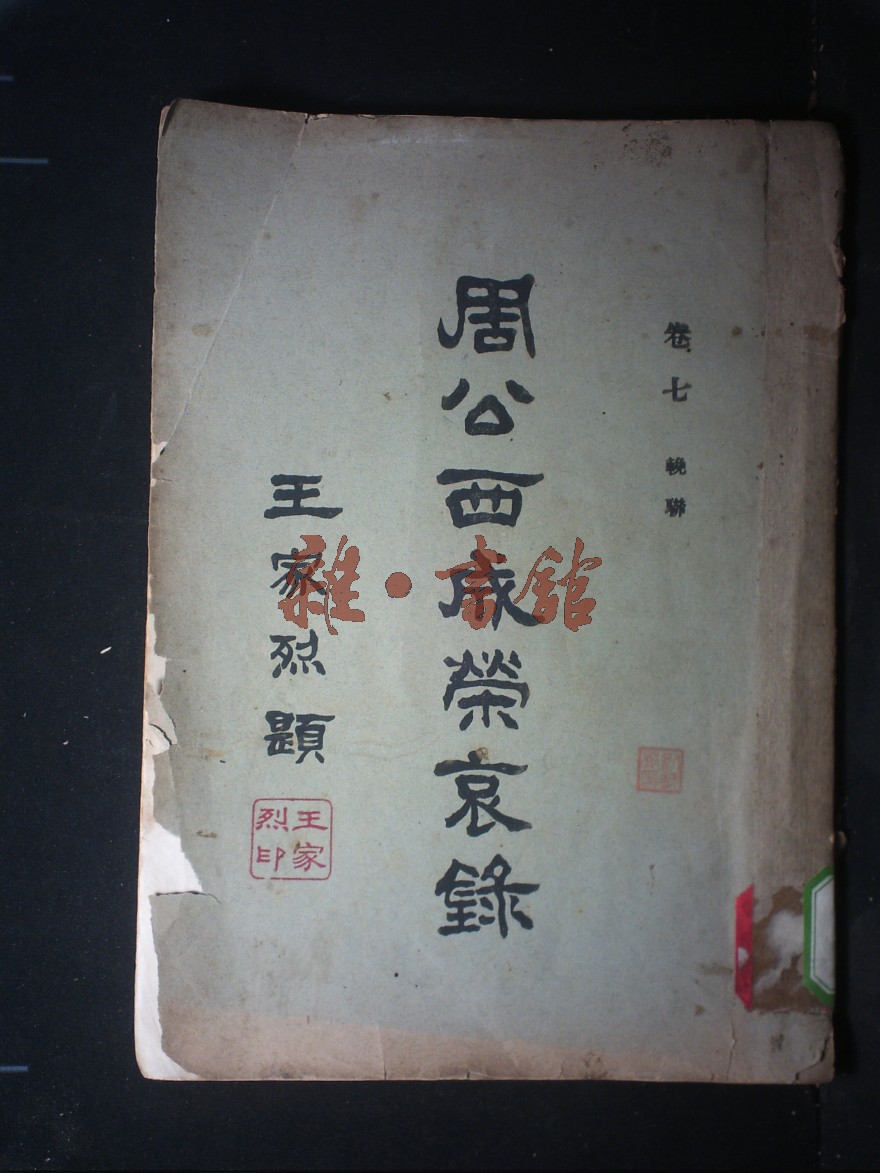 卷七 輓聯
周公西成榮哀錄
王家烈題
王家烈印
雜·書館